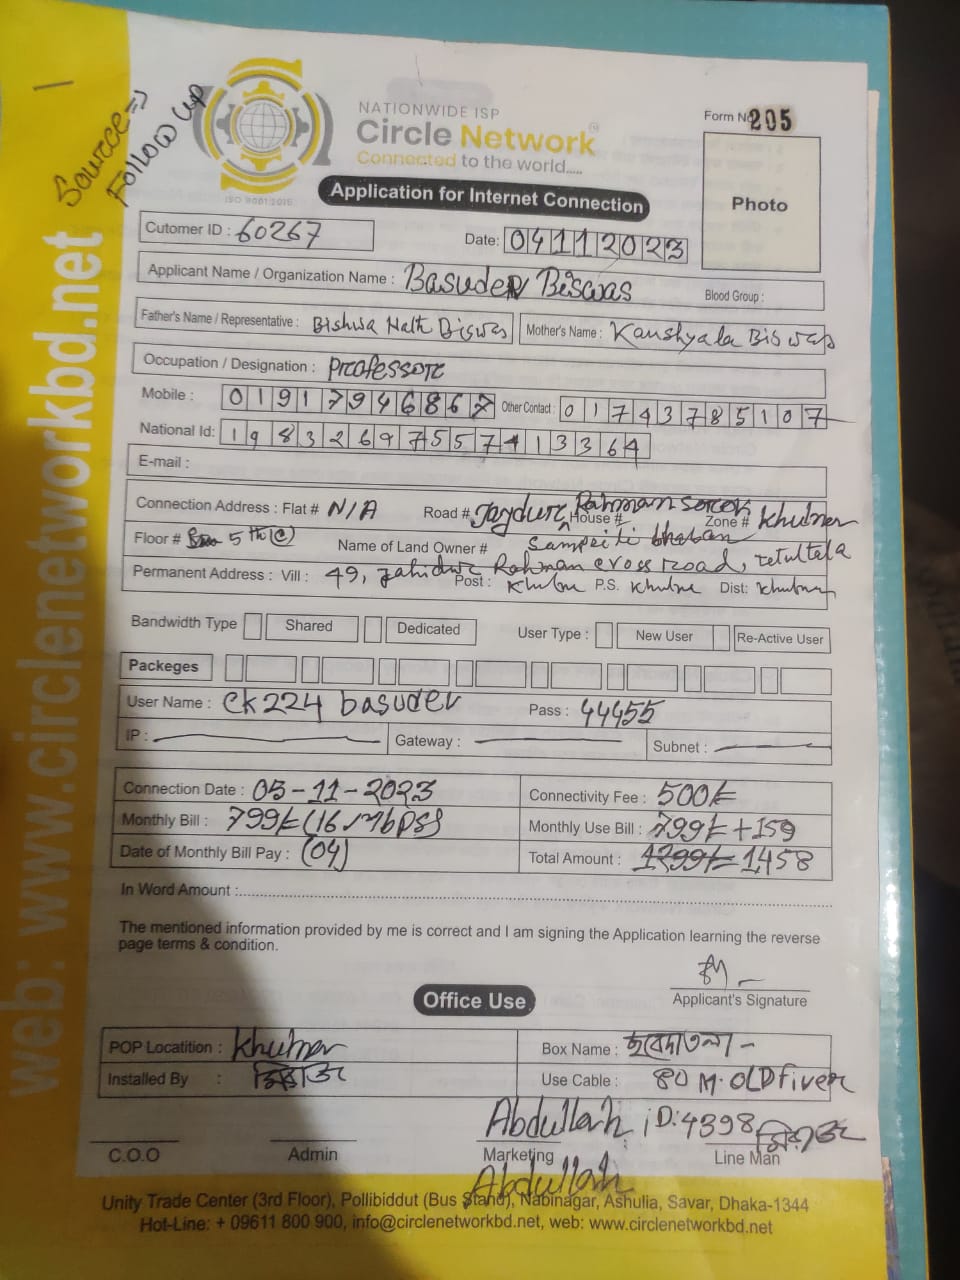 Source => Follow up
NATIONWIDE ISP
Circle Network
Connected to the world.....
ISO 9001:2015
Form No 205
Application for Internet Connection
Photo
Cutomer ID : 60267
Date: 04112023
Applicant Name / Organization Name : Basuder Biswas Blood Group :
Father's Name / Representative : Bishwa Nath Biswas Mother's Name : Kaushyala Biswas
Occupation / Designation : Professore
Mobile : 01917946867 Other Contact : 01743785107
National Id: 19832697557413364
E-mail :
Connection Address : Flat # N/A Road # Rahman House # Zone # Khulna
Floor # 5th Name of Land Owner # bhaban
Permanent Address : Vill : 49, Rahman cross road, Post : Khulna P.S. Khulna Dist: Khulna
Bandwidth Type Shared Dedicated User Type : New User Re-Active User
Packeges
User Name : ck224 basuder Pass : 44455
IP : Gateway : Subnet :
Connection Date : 05-11-2023 Connectivity Fee : 500/=
Monthly Bill : 799/= (16 Mbps) Monthly Use Bill : 799/= +159
Date of Monthly Bill Pay : (04) Total Amount : 1299/= 1458
In Word Amount :
The mentioned information provided by me is correct and I am signing the Application learning the reverse
page terms & condition.
Applicant's Signature
Office Use
POP Locatition : Khulna Box Name :
Installed By : Use Cable : 80 M. OLD Fiver
Abdullah iD: 4398
C.O.O Admin Marketing Line Man
Abdullah
Unity Trade Center (3rd Floor), Pollibiddut (Bus Stand), Nabinagar, Ashulia, Savar, Dhaka-1344
Hot-Line: + 09611 800 900, info@circlenetworkbd.net, web: www.circlenetworkbd.net
web: www.circlenetworkbd.net